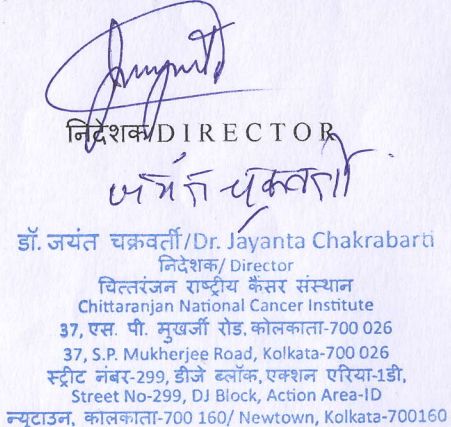 निदेशक/DIRECTOR
जयंत चक्रवर्ती
डॉ. जयंत चक्रवर्ती/Dr. Jayanta Chakrabarti
निदेशक/ Director
चित्तरंजन राष्ट्रीय कैंसर संस्थान
Chittaranjan National Cancer Institute
37, एस. पी. मुखर्जी रोड, कोलकाता-700 026
37, S.P. Mukherjee Road, Kolkata-700 026
स्ट्रीट नंबर-299, डीजे ब्लॉक, एक्शन एरिया-1डी,
Street No-299, DJ Block, Action Area-ID
न्यूटाउन, कोलकाता-700 160/ Newtown, Kolkata-700160